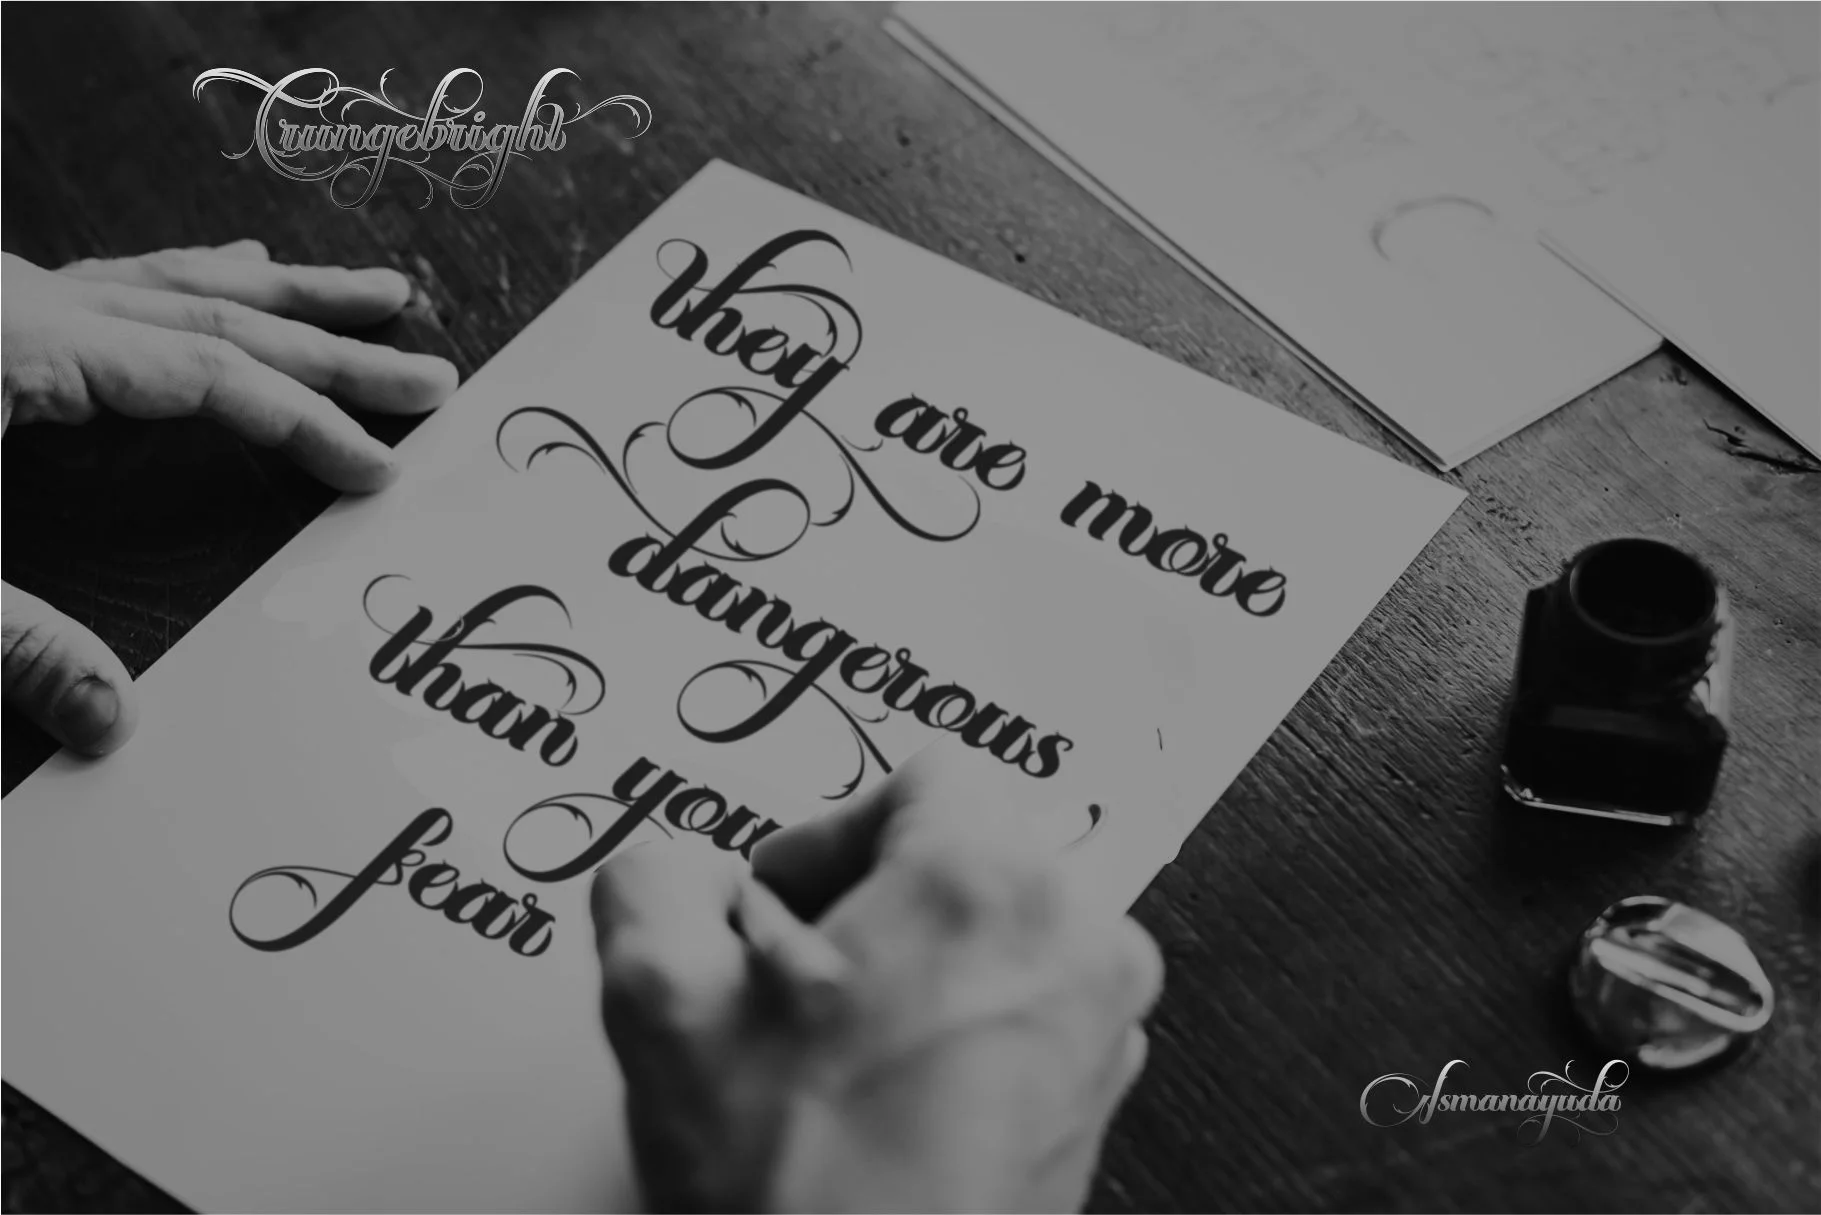 they are more
dangerous
than you
fear
,
Asmanayuda